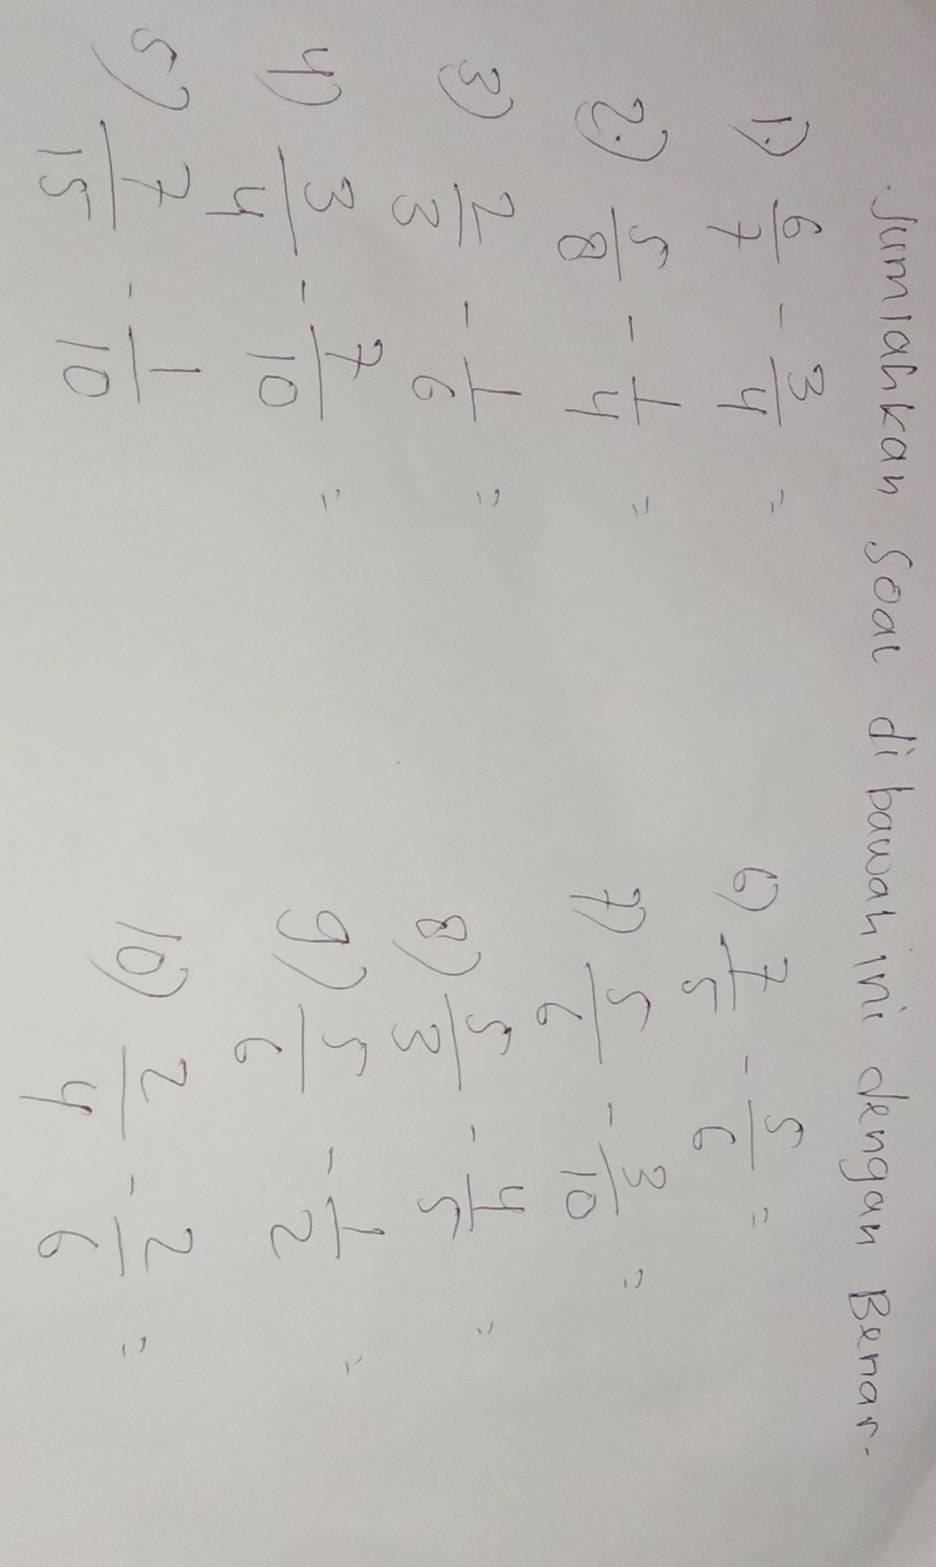 Jumlahkan Soal di bawah ini dengan Benar.
1.) 6/7 - 3/4 =
2.) 5/8 - 1/4 =
3) 2/3 - 1/6 =
4) 3/4 - 7/10 =
5) 7/15 - 1/10
6) 7/5 - 5/6 =
7) 5/6 - 3/10 =
8) 5/3 - 4/5 =
9) 5/6 - 1/2 =
10) 2/4 - 2/6 =